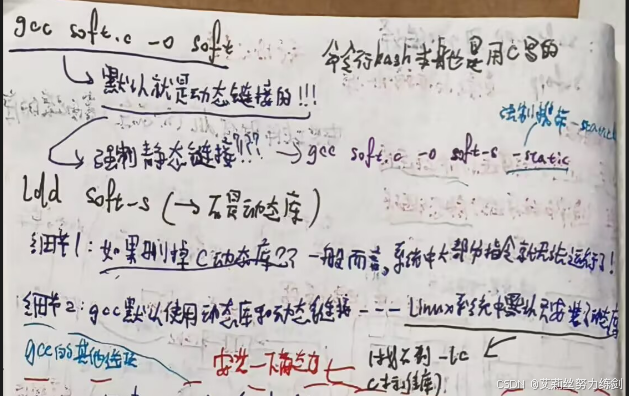 gcc soft.c -o soft
命令行bash本身也是用C写的
默认就是动态链接的!!!
强制静态链接?!?? → gcc soft.c -o soft-s -static
ldd soft-s (→不是动态库)
细节1:如果删掉C动态库?? 一般而言,系统中大部分指令就无法运行了!
细节2:gcc默认使用动态库和动态链接 --- Linux系统中默认只安装了动态库
gcc的其他选项
安装一下静态库
(找不到 -lc
C标准库)
CSDN @艾莉丝努力练剑